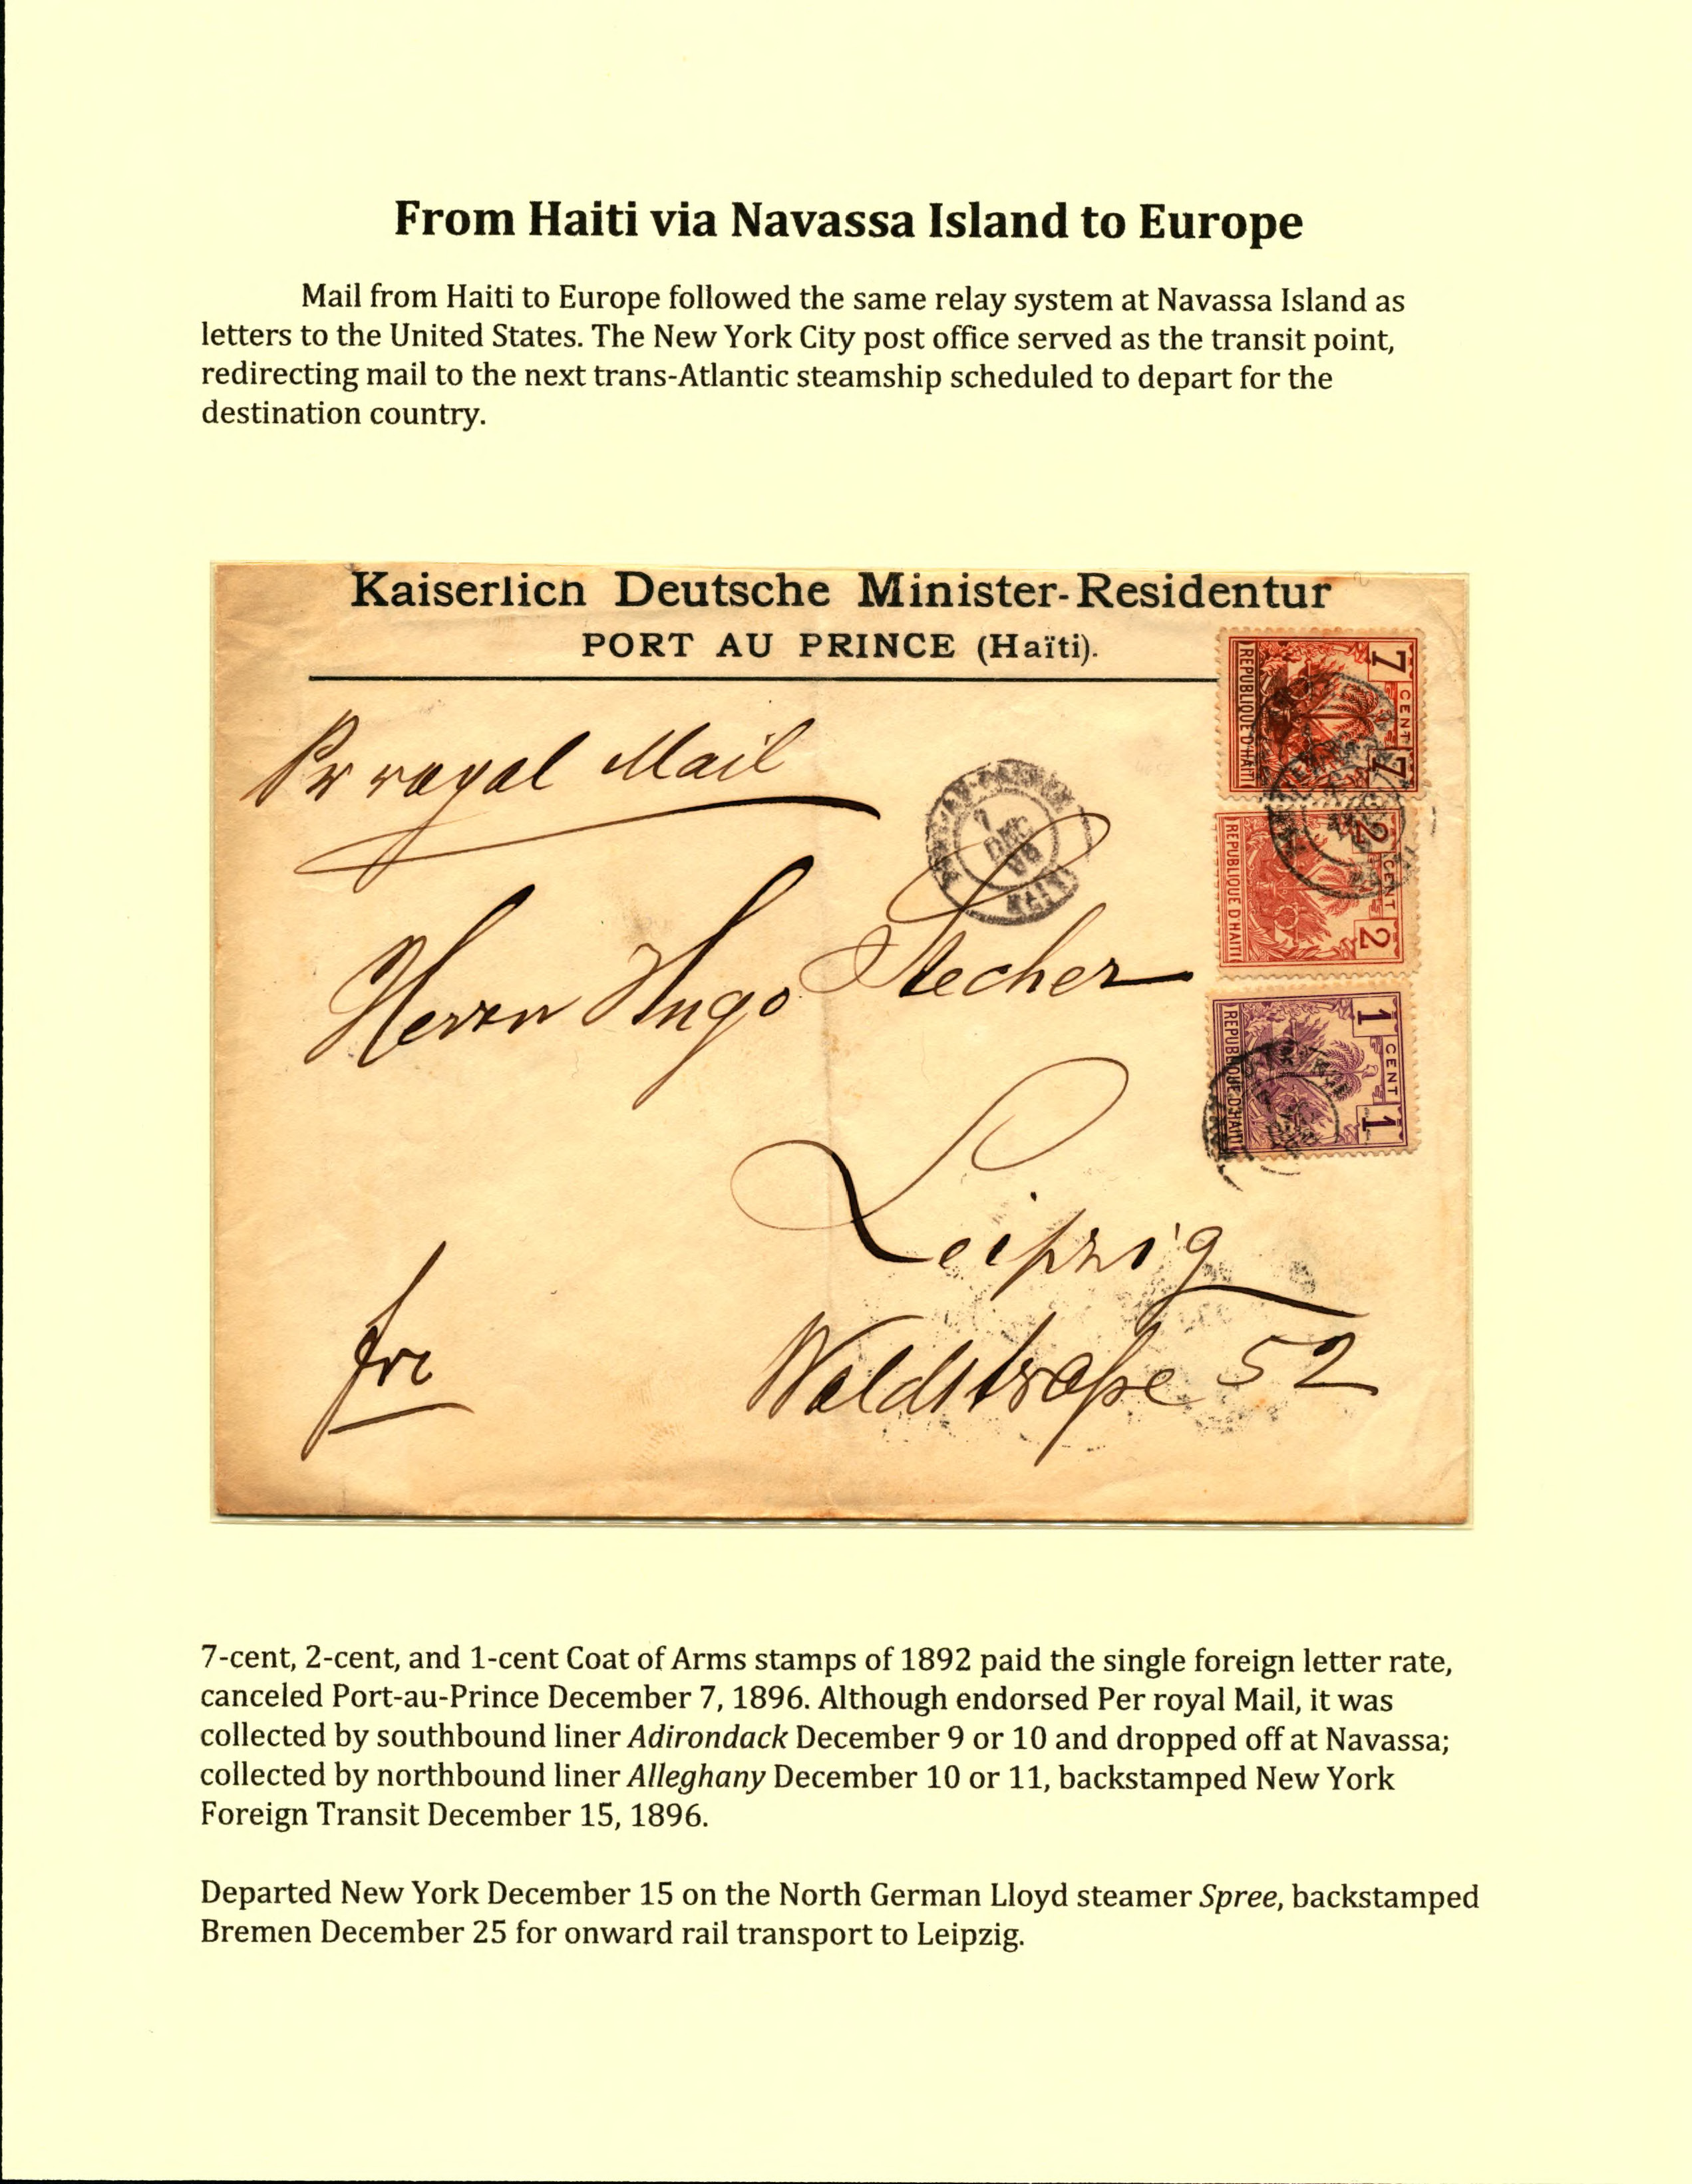 From Haiti via Navassa Island to Europe
Mail from Haiti to Europe followed the same relay system at Navassa Island as
letters to the United States. The New York City post office served as the transit point,
redirecting mail to the next trans-Atlantic steamship scheduled to depart for the
destination country.
Kaiserlich Deutsche Minister-Residentur
PORT AU PRINCE (Haïti).
Pr royal Mail
7 CENT 7
REPUBLIQUE D'HAITI
7
DEC
96
HAITI
2 CENT 2
REPUBLIQUE D'HAITI
Herrn Hugo Stecher
1 CENT 1
REPUBLIQUE D'HAITI
Leipzig
frc
Waldstraße 52
7-cent, 2-cent, and 1-cent Coat of Arms stamps of 1892 paid the single foreign letter rate,
canceled Port-au-Prince December 7, 1896. Although endorsed Per royal Mail, it was
collected by southbound liner Adirondack December 9 or 10 and dropped off at Navassa;
collected by northbound liner Alleghany December 10 or 11, backstamped New York
Foreign Transit December 15, 1896.
Departed New York December 15 on the North German Lloyd steamer Spree, backstamped
Bremen December 25 for onward rail transport to Leipzig.